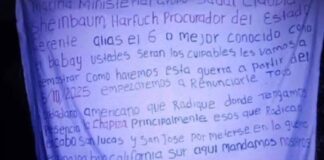 Marina Ministerial Claudia
Sheinbaum Harfuch Procurador del Estado
Gerente alias el 6 o mejor conocido como
babay ustedes seran los culpables les vamos a
demostrar como haremos esta guerra a partir del
10 2025 empezaremos a Renunciarle Todo
americano que Radique donde Tengamos
Presencia la Chapiza Principalmente esos que Radican
cabo San Lucas y San Jose por meterse en la guerra
baja california sur aqui mandamos nosotros